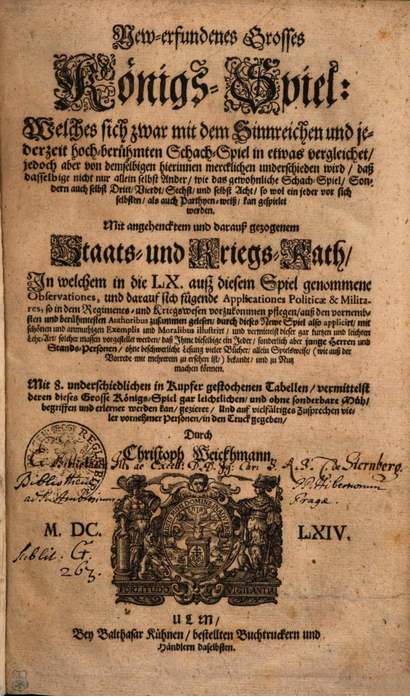 New-erfundenes Grosses
Königs-Spiel:
Welches sich zwar mit dem Sinnreichen und je-
derzeit hoch-berühmten Schach-Spiel in etwas vergleichet/
jedoch aber von demselbigen hierinnen mercklichen underschieden wird / daß
dasselbige nicht nur allein selbst Ander / wie das gewohnliche Schach-Spiel / Son-
dern auch selbst Dritt / Vierdt / Sechst / und selbst Acht / so wol ein jeder vor sich
selbsten / als auch Parthyen-weiß / kan gespielet
werden.
Mit angehencktem und darauß gezogenem
Staats- und Kriegs-Rath /
In welchem in die LX. auß diesem Spiel genommene
Observationes, und darauf sich fügende Applicationes Politicæ & Milita-
res, so in dem Regiments- und Kriegswesen vorzukommen pflegen / auß den vornemb-
sten und berühmtesten Authoribus zusammen gelesen / durch dieses New Spiel also applicirt / mit
schönen und anmuhtigen Exemplis und Moralibus illustrirt / und vermittelst dieser gar kurtzen und leichten
Lehr-Art / solcher massen vorgestellet werden / daß Ihme dieselbige ein Jeder / sonderlich aber junge Herren und
Stands-Personen / ohne beschwerliche Lesung vieler Bücher / allein Spielsweise / (wie auß der
Vorrede mit mehrerem zu ersehen ist /) bekandt / und zu Nutz
machen können.
Mit 8. underschiedlichen in Kupfer gestochenen Tabellen / vermittelst
deren dieses Grosse Königs-Spiel gar leichtlichen / und ohne sonderbare Müh /
begriffen und erlernet werden kan / gezieret / Und auf vielfältiges Zusprechen vie-
ler vornehmer Personen / in den Truck gegeben /
Durch
Christoph Weickhmann.
Sternberg
Pragæ
M. DC. LXIV.
FORTITUDO VIGILANTIA
ULM /
Bey Balthasar Kühnen / bestellten Buchtruckern und
Händlern daselbsten.